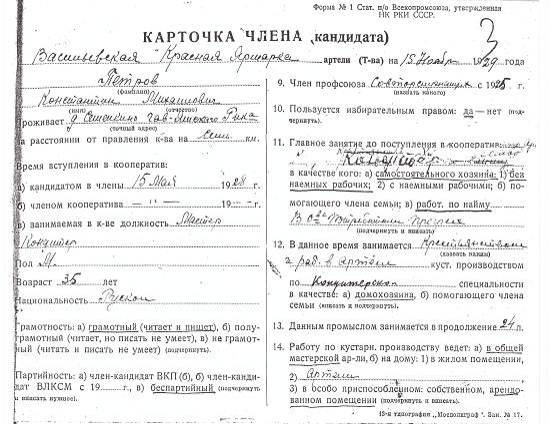 Форма № 1 Стат. п/о Всекопромсоюза, утвержденная
НК РКИ СССР.
3
КАРТОЧКА ЧЛЕНА (кандидата)
"Красная Ярмарка" артели (Т-ва) на 15 Ноября 1929 года
Петров
(фамилия)
Константин Михайлович
(имя) (отчество)
Проживает д.
(точный адрес)
на расстоянии от правления к-ва на км.
Время вступления в кооператив:
а) кандидатом в члены 15 Мая 1928 г.
б) членом кооператива — " — 192 — г.
в) занимаемая в к-ве должность Мастер
Кондитер
Пол М.
Возраст 35 лет
Национальность Руской
Грамотность: а) грамотный (читает и пишет), б) полу-
грамотный (читает, но писать не умеет), в) не грамот-
ный (читать и писать не умеет) (подчеркнуть)
Партийность: а) член-кандидат ВКП (б), б) член-канди-
дат ВЛКСМ с 19 г., в) беспартийный (подчеркнуть
и вписать нужное).
9. Член профсоюза с 1925 г.
(назвать какого)
10. Пользуется избирательным правом: да—нет (под-
черкнуть).
11. Главное занятие до поступления в кооператив
в качестве кого: а) самостоятельного хозяина: 1) без
наемных рабочих; 2) с наемными рабочими; б) по-
могающего члена семьи; в) работ. по найму
В
(подчеркнуть и вписать)
12. В данное время занимается
(назвать каким)
и раб. в артели куст. производством
по Кондитерской специальности
в качестве: а) домохозяина, б) помогающего члена
семьи (вписать и подчеркнуть).
13. Данным промыслом занимается в продолжение 24 л.
14. Работу по кустарн. производству ведет: а) в общей
мастерской ар-ли, б) на дому: 1) в жилом помещении,
2) Артели
3) в особо приспособленном: собственном, арендо-
ванном помещении (подчеркнуть и вписать).
13-я типография „Мосполиграф“. Зак. № 17.